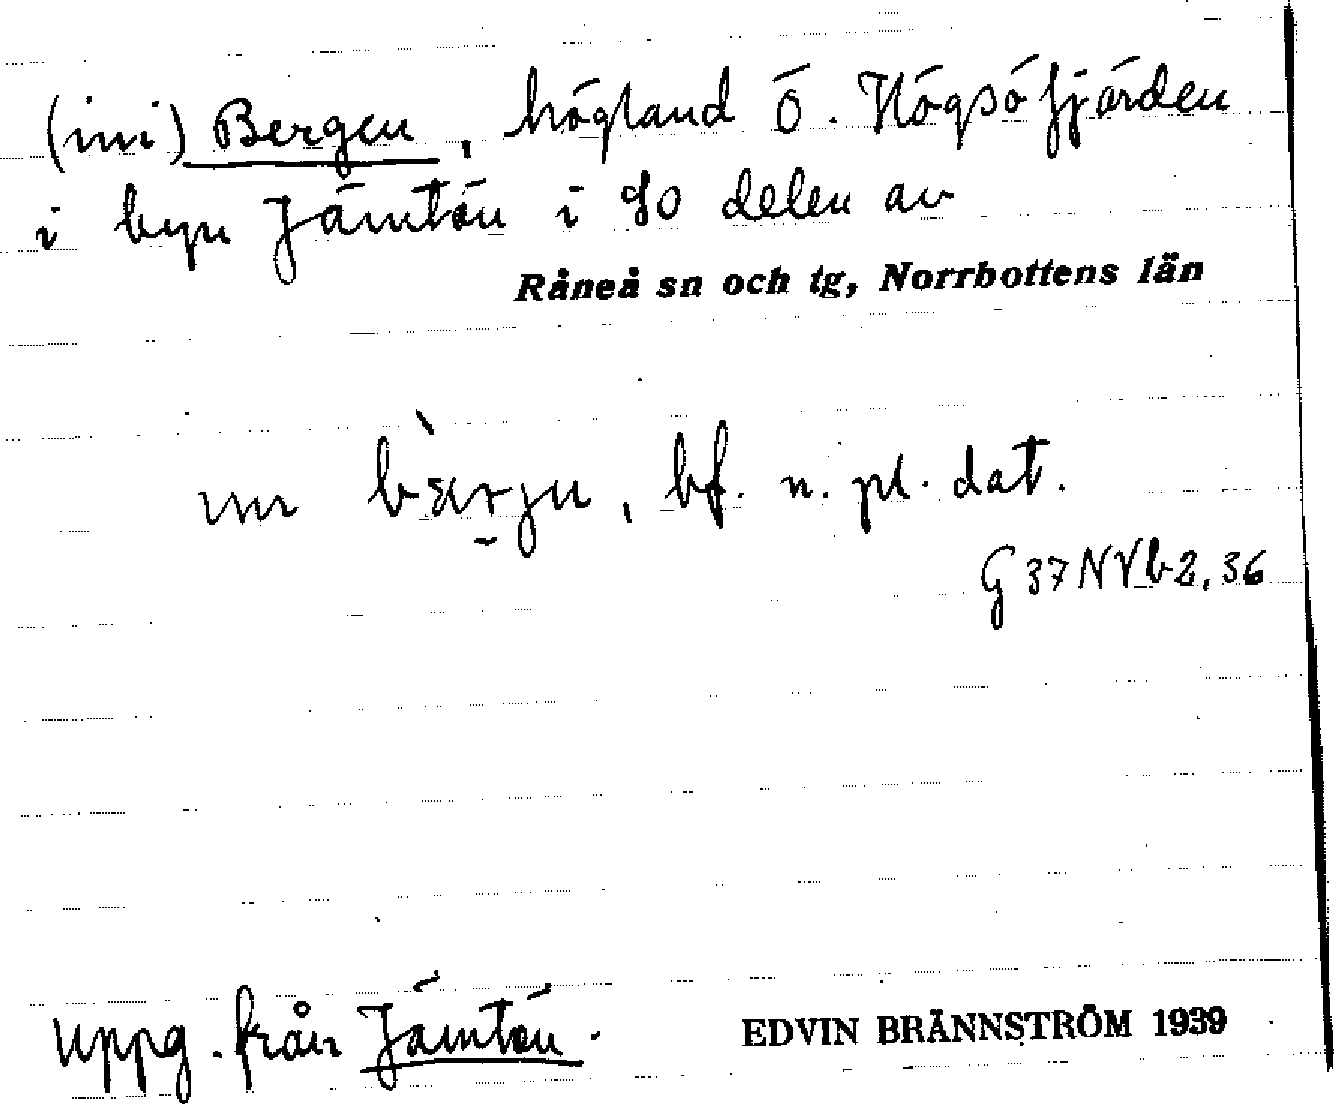 (ini) Bergen, högland Ö. Högsöfjärden
i byn Jämtön i SO delen av
Råneå sn och tg, Norrbottens län
bf. n. pl. dat.
G 37 NVb2, 36
uppg. från Jämtön.
EDVIN BRÄNNSTRÖM 1939